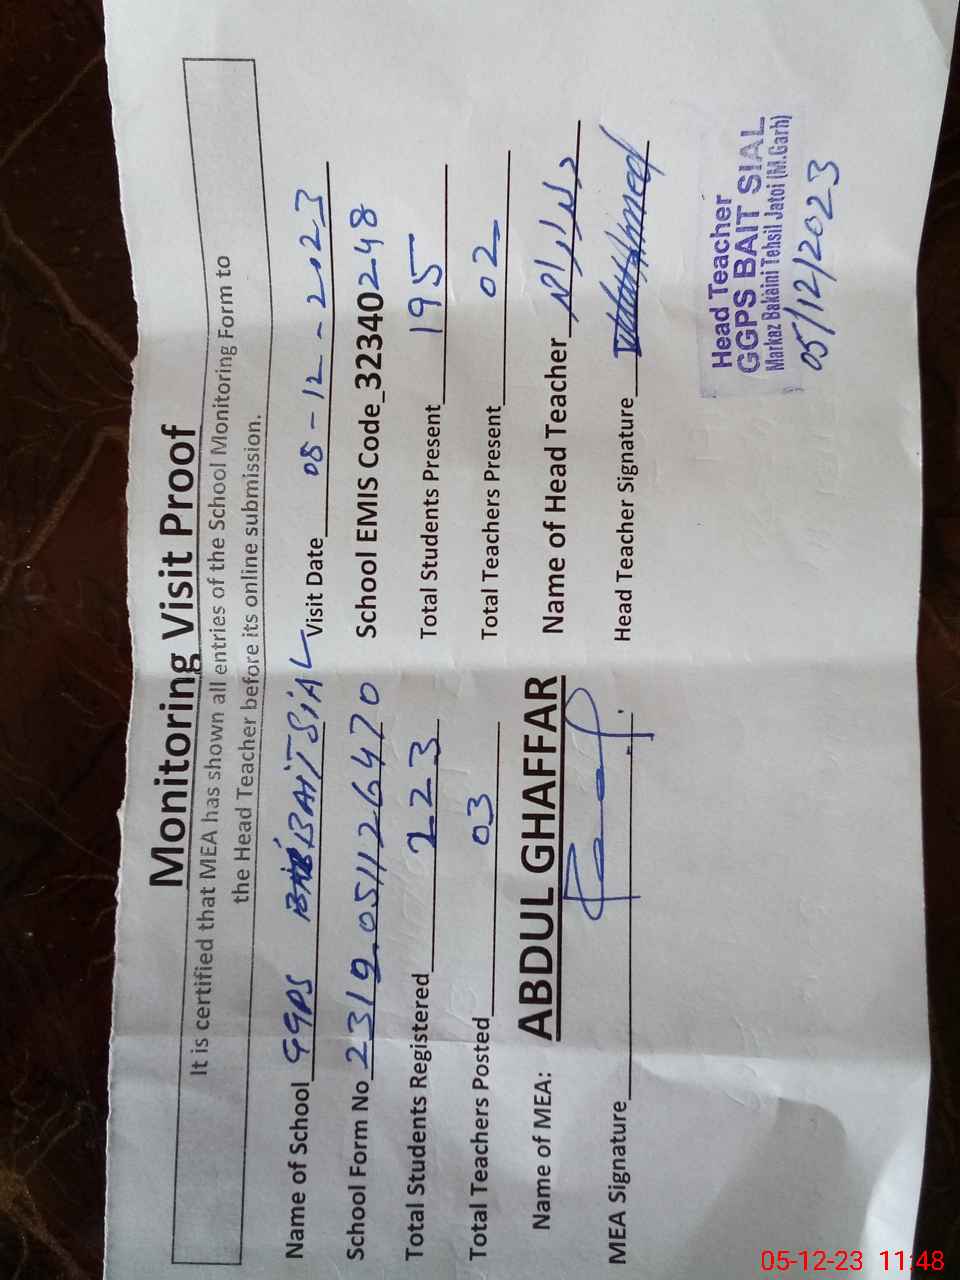 Monitoring Visit Proof
It is certified that MEA has shown all entries of the School Monitoring Form to
the Head Teacher before its online submission.
Name of School GGPS BAIT SIAL Visit Date 05-12-2023
School Form No 2319.051126470 School EMIS Code_32340248
Total Students Registered 223 Total Students Present 195
Total Teachers Posted 03 Total Teachers Present 02
Name of MEA: ABDUL GHAFFAR Name of Head Teacher
MEA Signature Head Teacher Signature
Head Teacher
GGPS BAIT SIAL
Markaz Bakaini Tehsil Jatoi (M.Garh)
05/12/2023
05-12-23 11:48